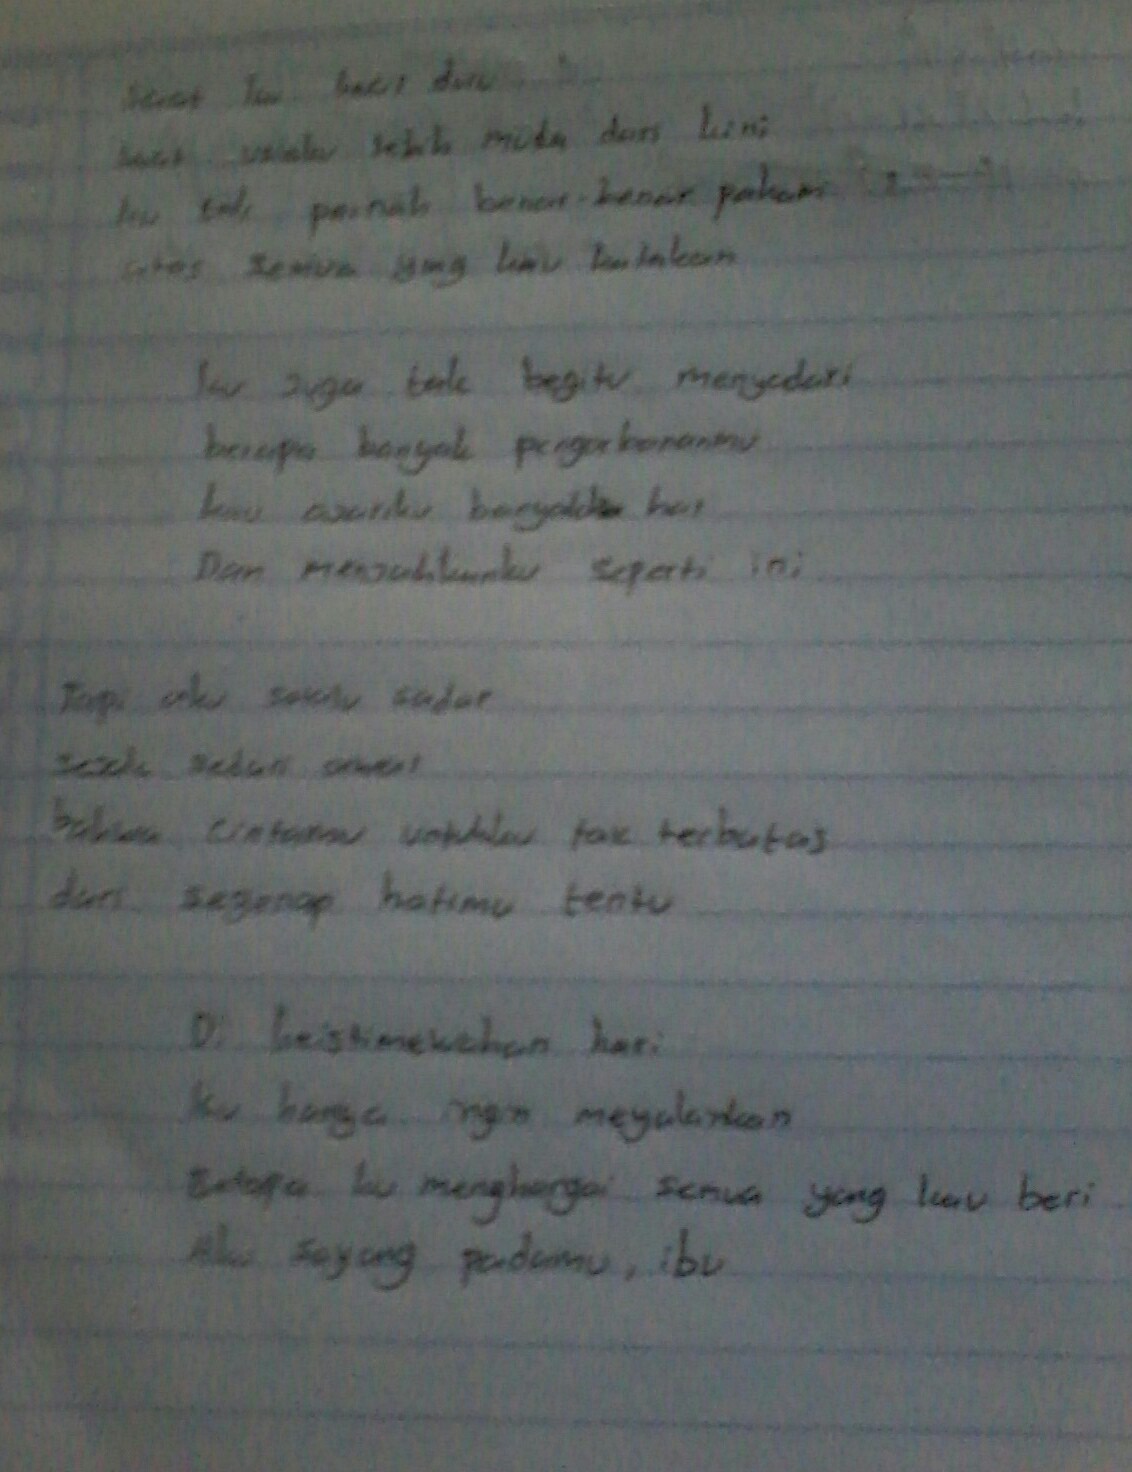 saat ku kecil dulu
saat usiaku lebih muda dari kini
ku tak pernah benar-benar pahami
atas semua yang kau katakan
ku juga tak begitu menyadari
berapa banyak pengorbananmu
kau ajariku banyak hal
Dan menjadikanku seperti ini
Tapi aku selalu sadar
sejak sedari awal
bahwa cintamu untukku tak terbatas
dari segenap hatimu tentu
Di keistimewahan hari
Ku hanya ingn meyakinkan
Betapa ku menghargai semua yang kau beri
Aku sayang padamu, ibu